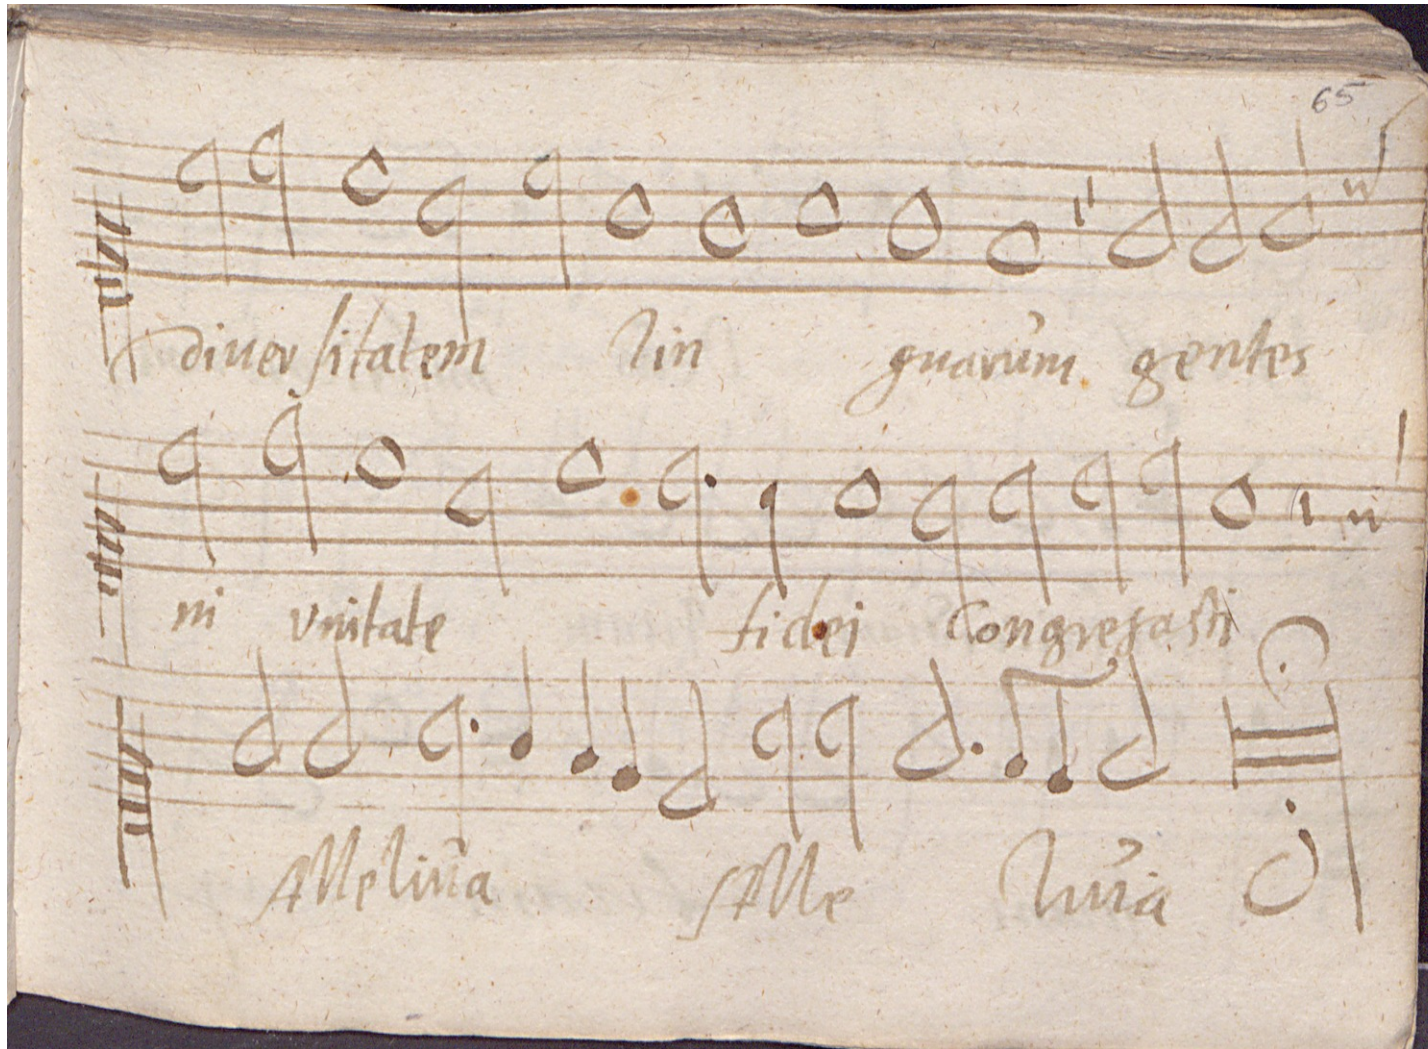 65
diuersitatem lin guarum gentes
in vnitate fidei Congregasti
Alleliua Alle luia